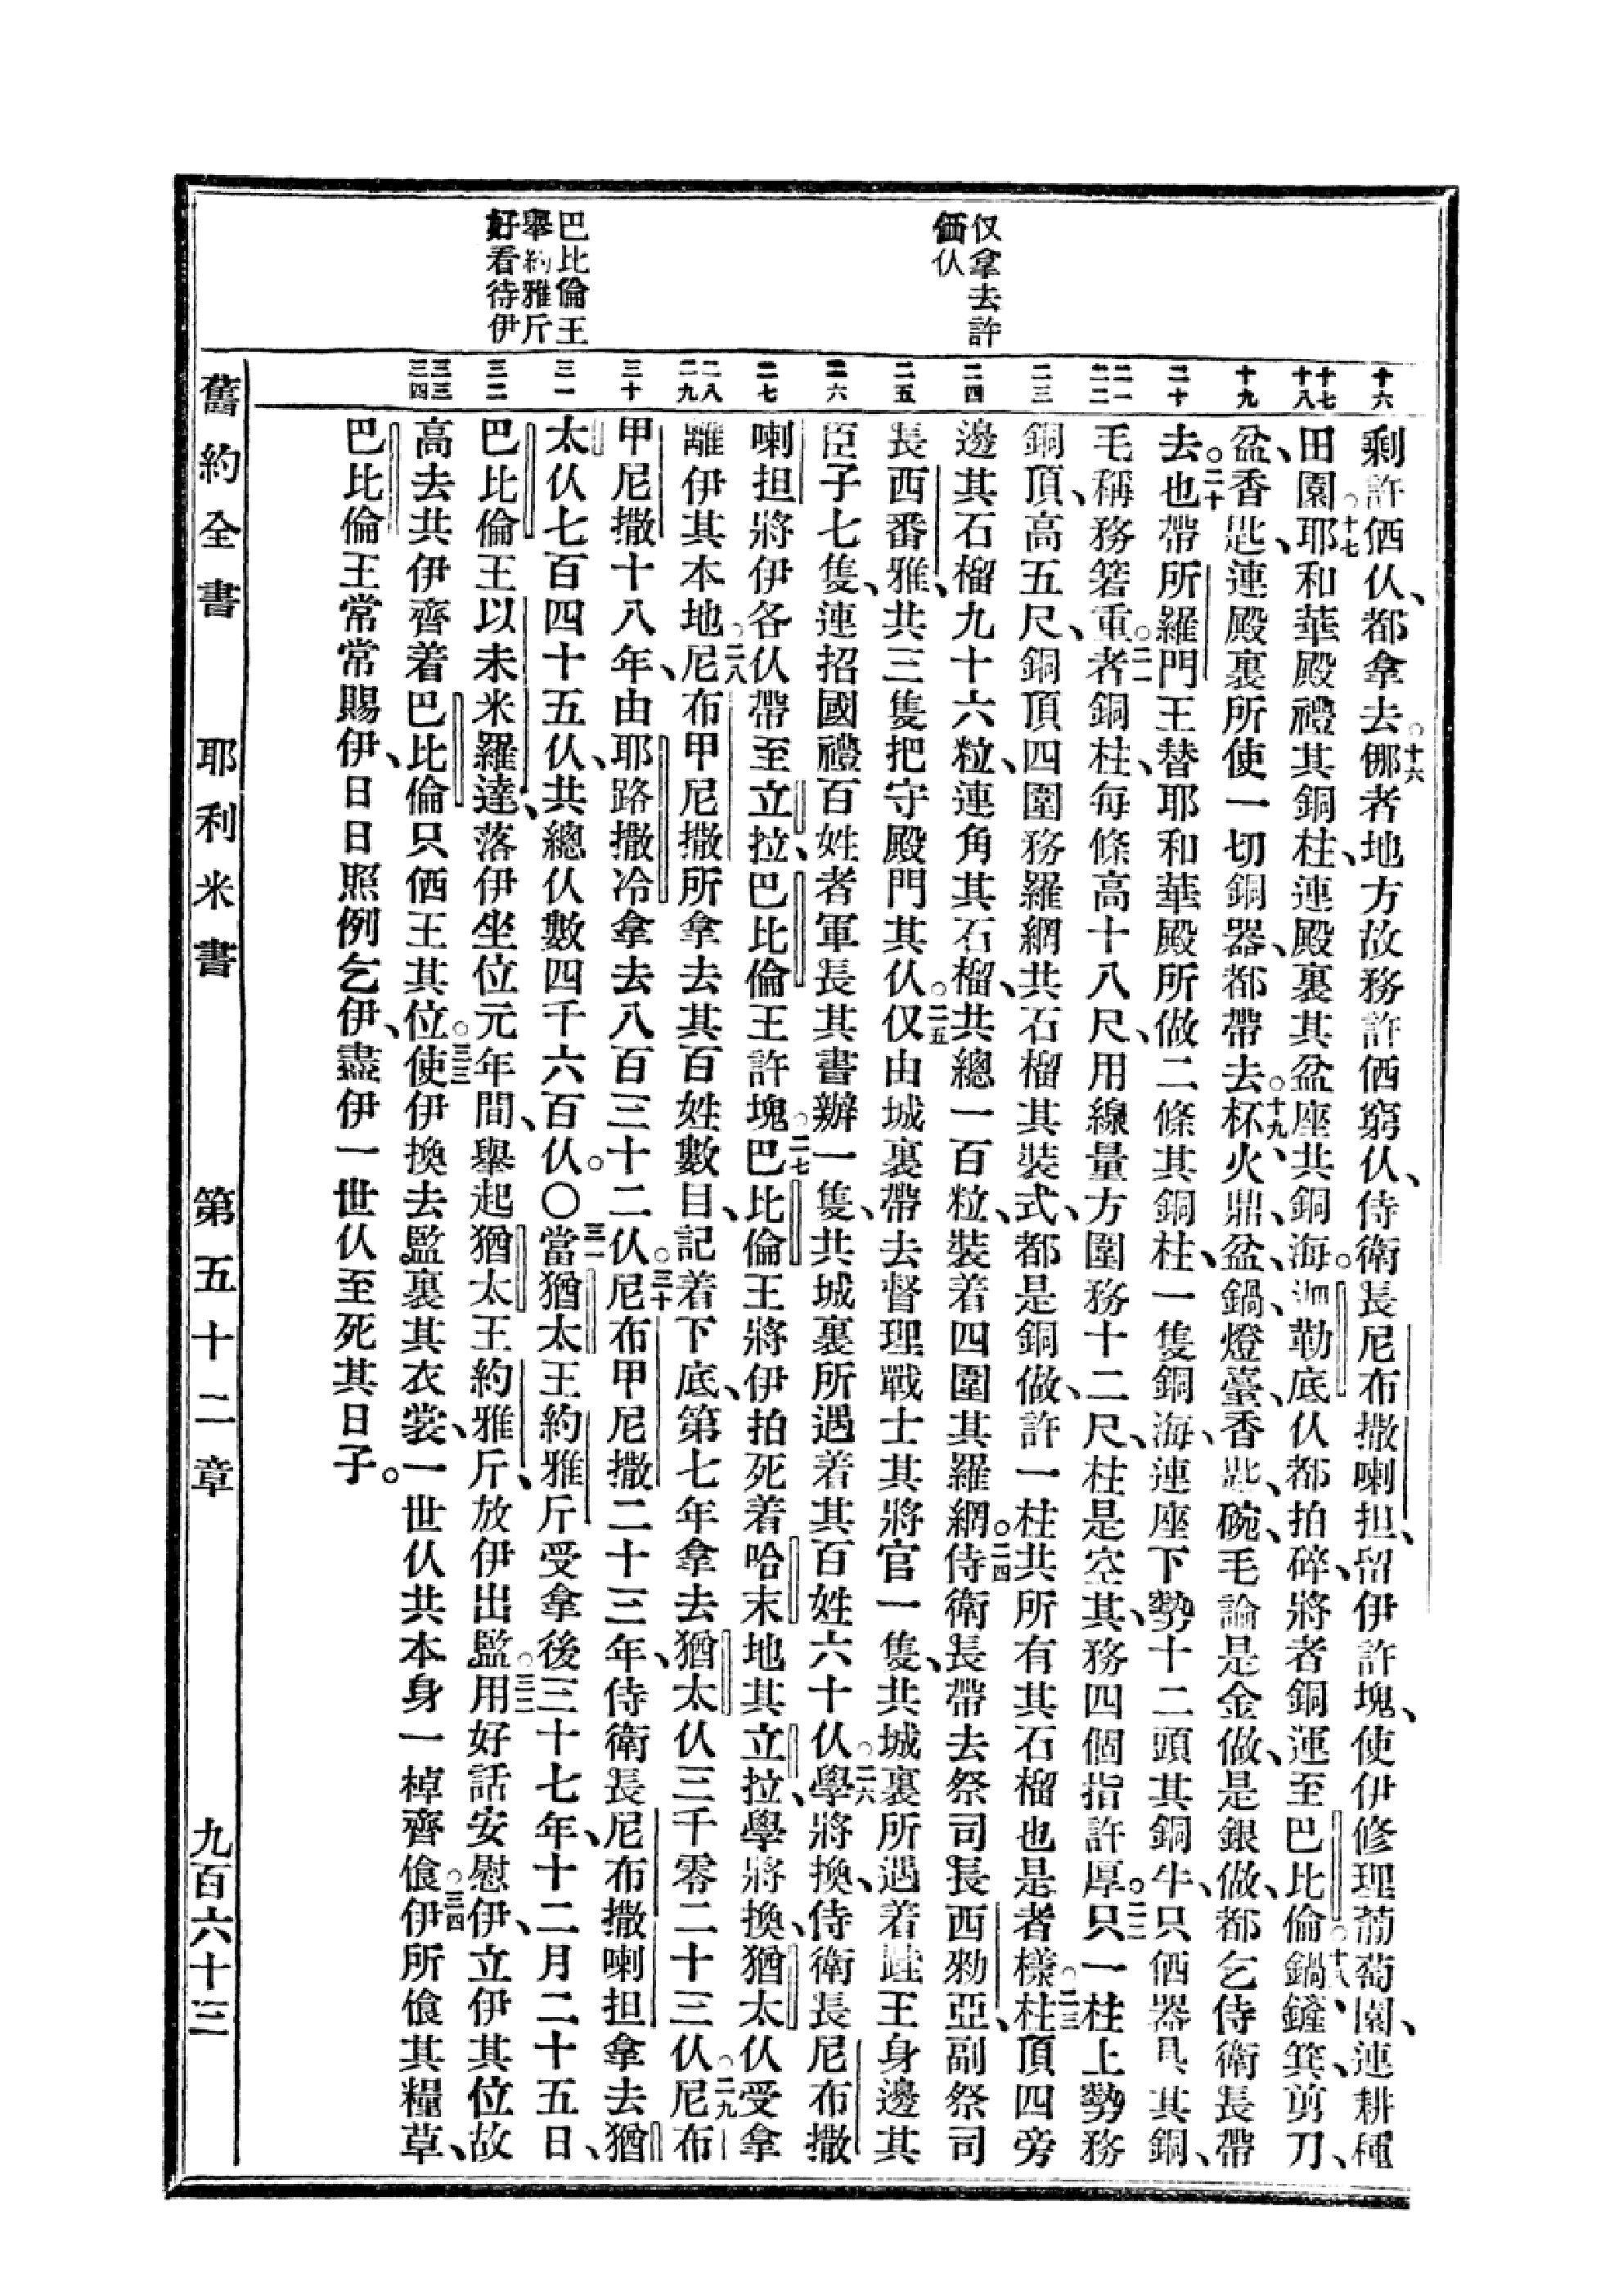 仅拿去許
価仈
巴比倫王
舉約雅斤
好看待伊
十六
十七
十八
十九
二十
二一
二二
二三
二四
二五
二六
二七
二八
二九
三十
三一
三二
三三
三四
剩許価仈、都拿去。十六儺者地方故務許価窮仈、侍衛長尼布撒喇担、留伊許塊、使伊修理葡萄園、連耕種
田園。十七耶和華殿禮其銅柱、連殿裏其盆座共銅海。迦勒底仈都拍碎、將者銅運至巴比倫。十八鍋、鏟、箕、剪刀、
盆、香匙、連殿裏所使一切銅器、都帶去。十九杯、火鼎、盆、鍋、燈臺、香匙、碗、毛論是金做、是銀做、都乞侍衛長帶
去。二十也帶所羅門王替耶和華殿所做二條其銅柱、一隻銅海、連座下勢十二頭其銅牛、只価器具其銅、
毛稱務箬重。二一者銅柱、每條高十八尺、用線量方圍務十二尺、柱是空其、務四個指許厚。二二只一柱上勢務
銅頂、高五尺、銅頂四圍務羅網共石榴其裝式、都是銅做、許一柱共所有其石榴也是者樣。二三柱頂四旁
邊其石榴九十六粒、連角其石榴、共總一百粒、裝着四圍其羅網。二四侍衛長帶去祭司長西勑亞、副祭司
長西番雅、共三隻把守殿門其仈。二五仅由城裏帶去督理戰士其將官一隻、共城裏所遇着陛王身邊其
臣子七隻、連招國禮百姓者軍長其書辦一隻、共城裏所遇着其百姓六十仈。二六學將換、侍衛長尼布撒
喇担將伊各仈帶至立拉、巴比倫王許塊。二七巴比倫王將伊拍死着哈末地其立拉、學將換、猶太仈受拿
離伊其本地。二八尼布甲尼撒所拿去其百姓數目、記着下底、第七年拿去猶太仈三千零二十三仈。二九尼布
甲尼撒十八年、由耶路撒冷拿去八百三十二仈。三十尼布甲尼撒二十三年、侍衛長尼布撒喇担拿去猶
太仈七百四十五仈、共總仈數四千六百仈。〇三一當猶太王約雅斤受拿後三十七年、十二月二十五日、
巴比倫王以未米羅達、落伊坐位元年間、舉起猶太王約雅斤、放伊出監。三二用好話安慰伊、立伊其位故
高去共伊齊着巴比倫只価王其位。三三使伊換去監裏其衣裳、一世仈共本身一棹齊飡。三四伊所飡其糧草、
巴比倫王常常賜伊、日日照例乞伊、盡伊一世仈至死其日子。
舊約全書　耶利米書　第五十二章　九百六十三